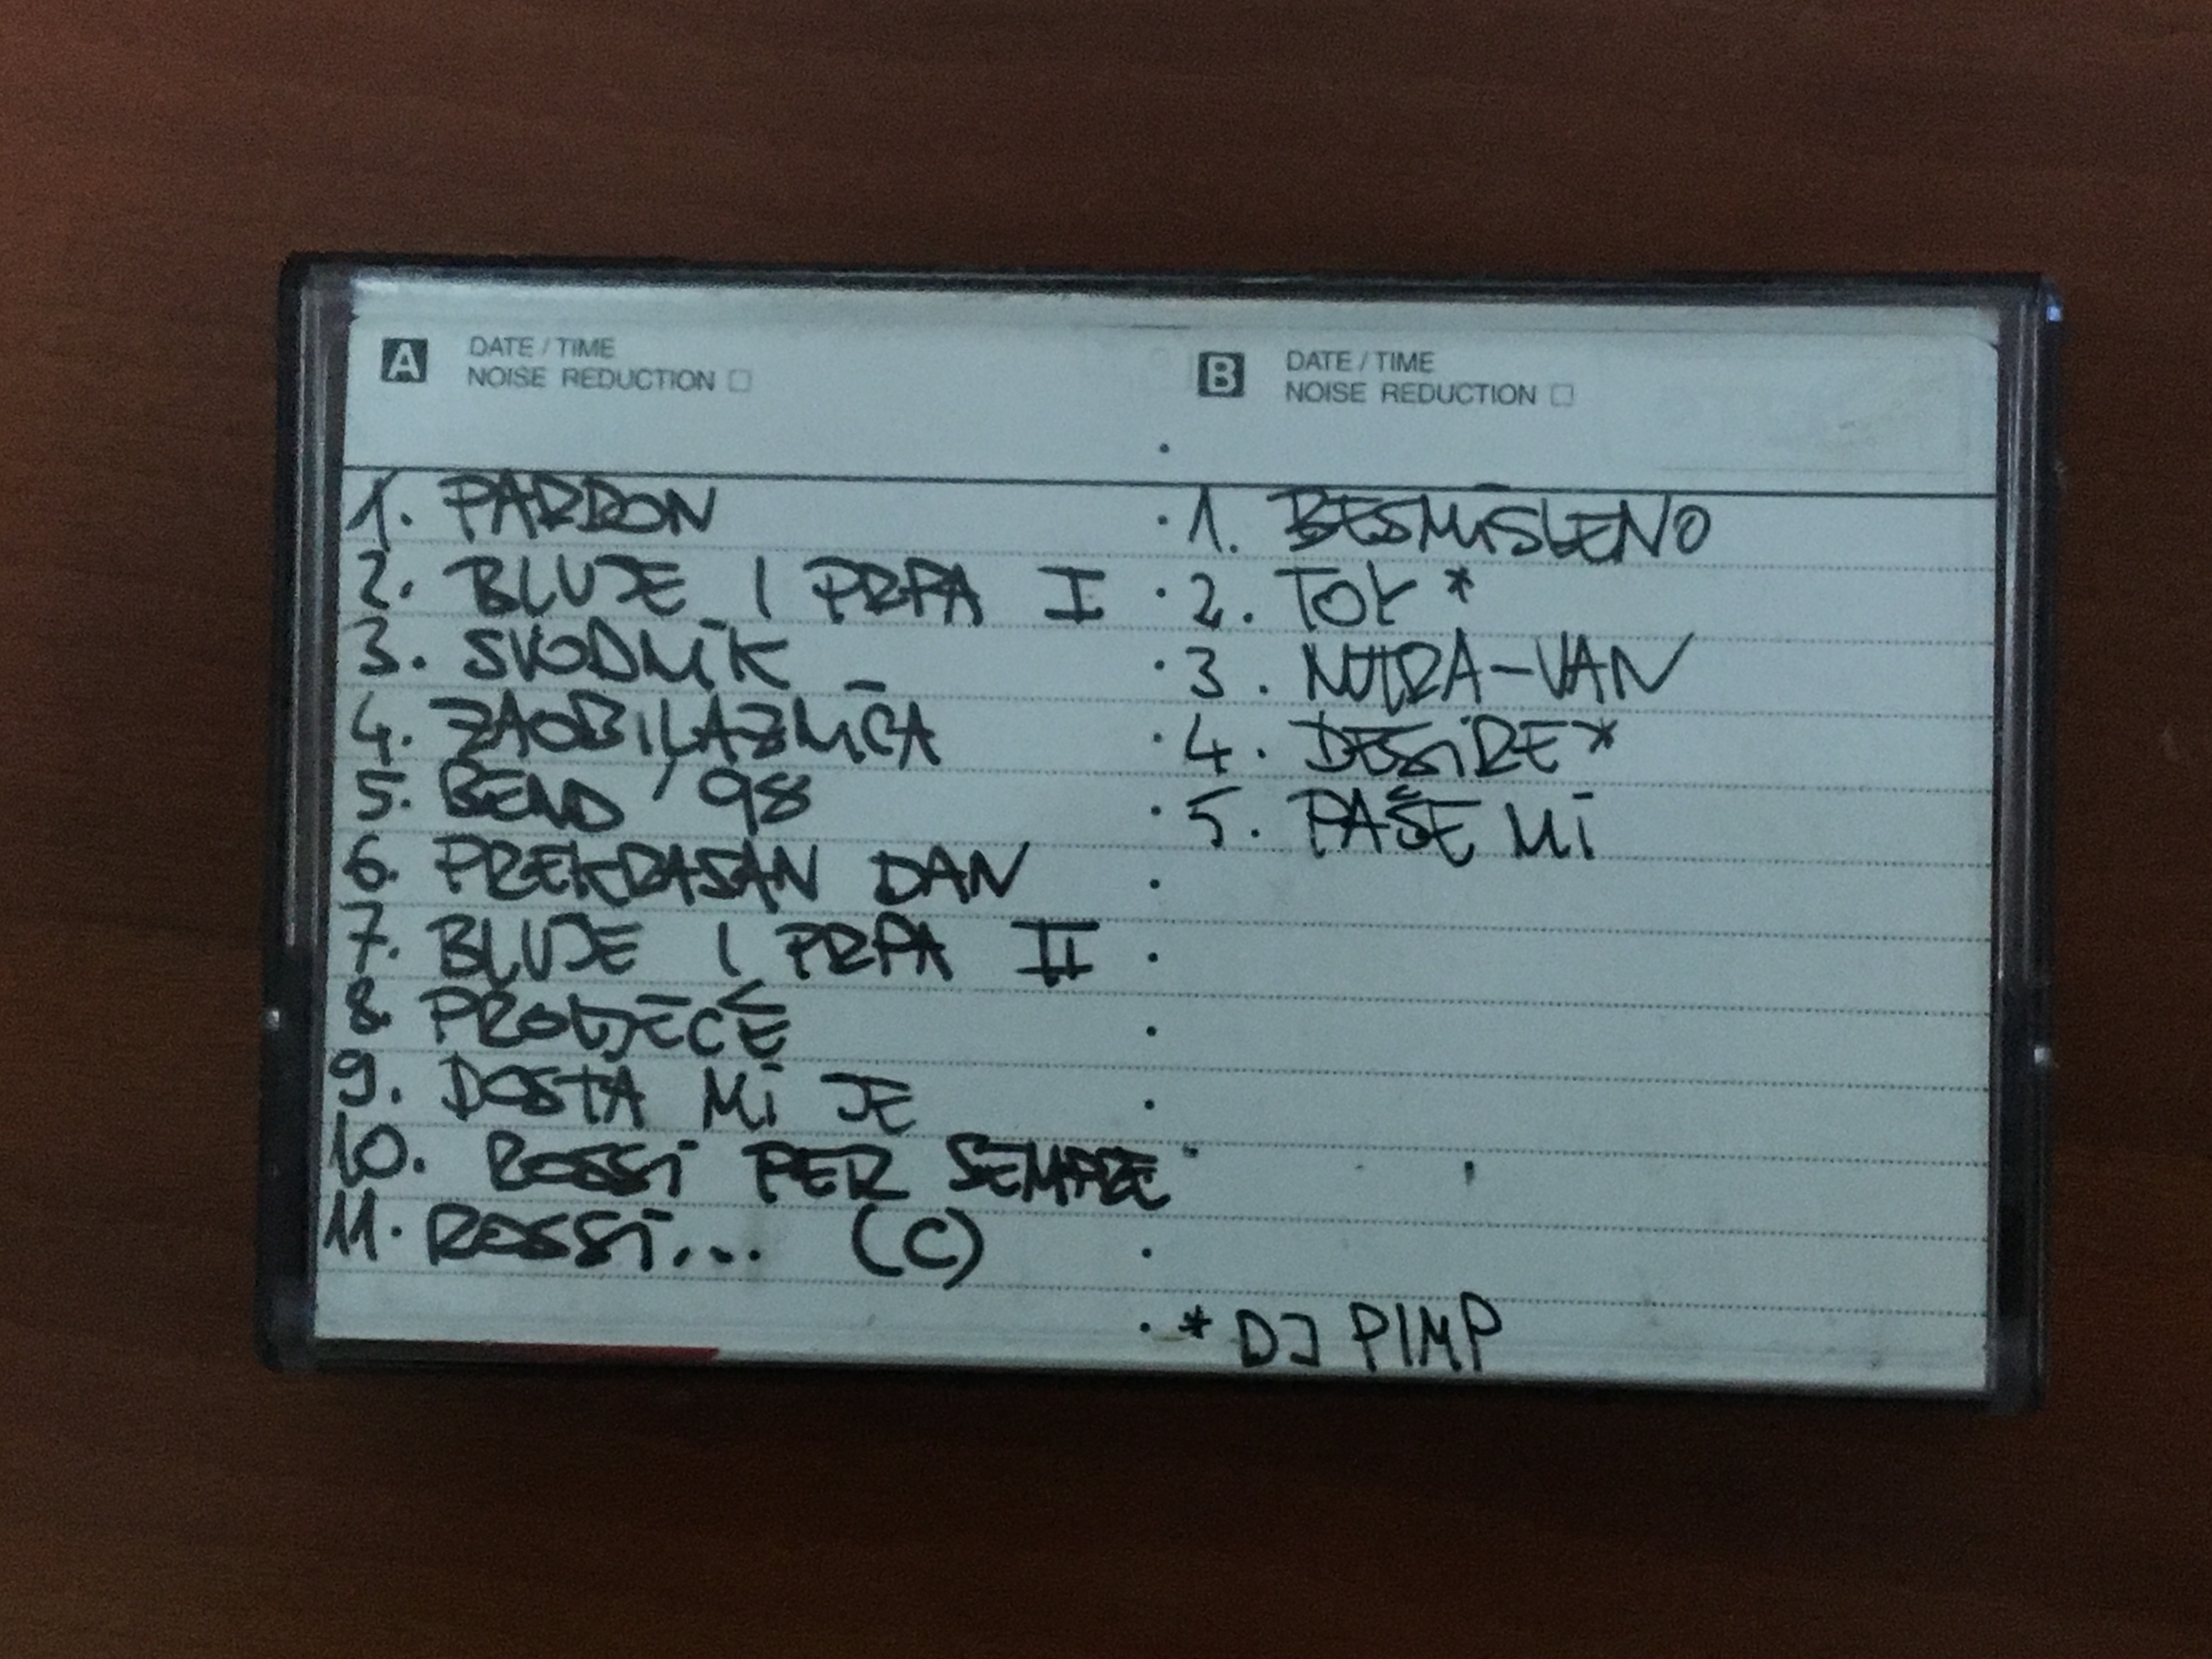 A DATE / TIME
NOISE REDUCTION
1. PARDON
2. BLUJE I PRPA I
3. SVODNIK
4. ZAOBILAZNICA
5. BEND '98
6. PREKRASAN DAN
7. BLUJE I PRPA II
8. PROLJEĆE
9. DOSTA MI JE
10. ROSSI PER SEMPRE
11. ROSSI... (C)
B DATE / TIME
NOISE REDUCTION
1. BESMISLENO
2. TOK *
3. NUTRA-VAN
4. DESIRE*
5. PAŠE MI
* DJ PIMP